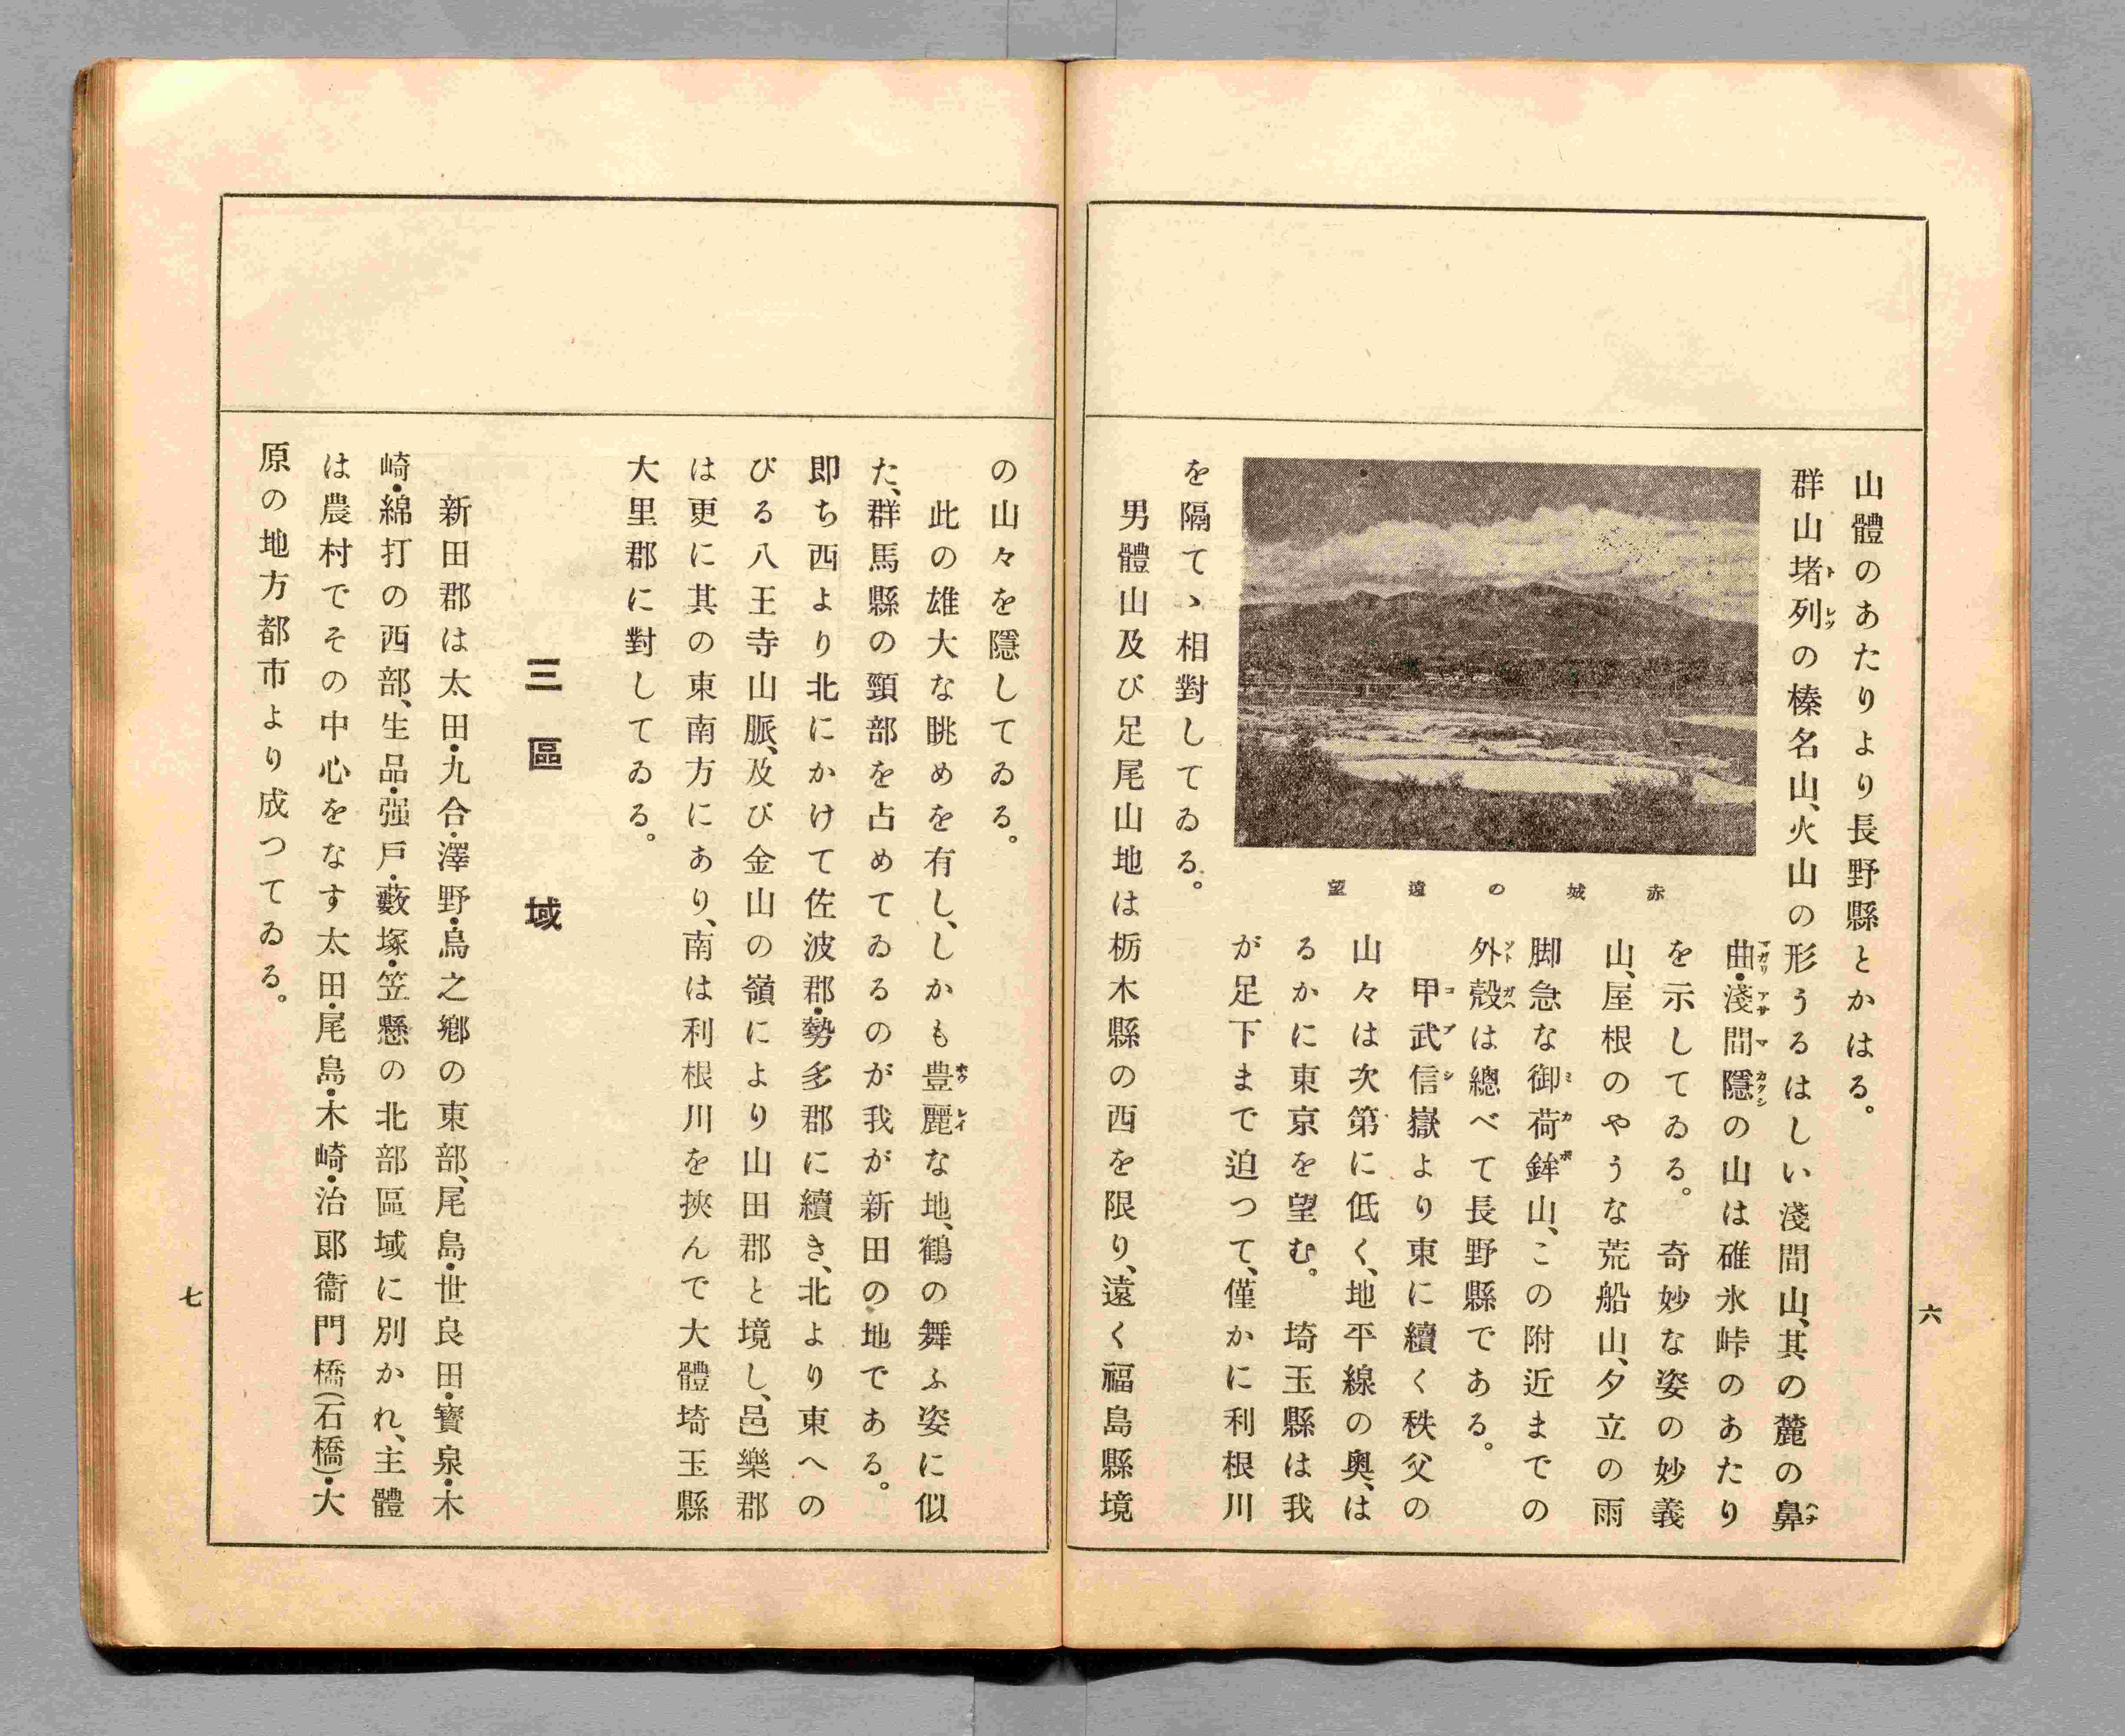 山體のあたりより長野縣とかはる。
群山堵列の榛名山、火山の形うるはしい淺間山、其の麓の鼻
曲・淺間隱の山は碓氷峠のあたり
を示してゐる。 奇妙な姿の妙義
山、屋根のやうな荒船山、夕立の雨
脚急な御荷鉾山、この附近までの
外殼は總べて長野縣である。
甲武信嶽より東に續く秩父の
山々は次第に低く、地平線の奧、は
るかに東京を望む。 埼玉縣は我
が足下まで迫つて、僅かに利根川
を隔てゝ相對してゐる。
男體山及び足尾山地は栃木縣の西を限り、遠く福島縣境
赤城の遠望
六
の山々を隱してゐる。
此の雄大な眺めを有し、しかも豊麗な地、鶴の舞ふ姿に似
た、群馬縣の頸部を占めてゐるのが我が新田の地である。
即ち西より北にかけて佐波郡・勢多郡に續き、北より東への
びる八王寺山脈、及び金山の嶺により山田郡と境し、邑樂郡
は更に其の東南方にあり、南は利根川を挾んで大體埼玉縣
大里郡に對してゐる。
三區域
新田郡は太田・九合・澤野・鳥之鄕の東部、尾島・世良田・寶泉・木
崎・綿打の西部、生品・强戸・藪塚・笠懸の北部區域に別かれ、主體
は農村でその中心をなす太田・尾島・木崎・治郎衞門橋(石橋)・大
原の地方都市より成つてゐる。
七